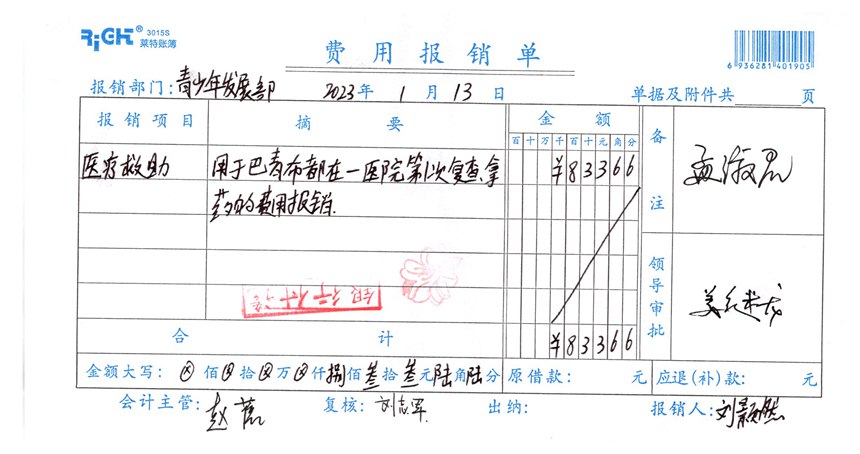 RiGHT® 3015S
莱特账簿
费用报销单
6 936281 401905
报销部门:青少年发展部 2023年 1月13日 单据及附件共 页
报销项目 摘要 金额 备注
百十万千百十元角分
医疗救助 用于巴青布都在一医院第1次复查、拿 ¥83366
药的费用报销.
银行付讫
领导审批
合计 ¥83366
金额大写: ⊗佰⊗拾⊗万⊗仟捌佰叁拾叁元陆角陆分 原借款: 元 应退(补)款: 元
会计主管: 赵 复核: 刘志军 出纳: 报销人: 刘颢然